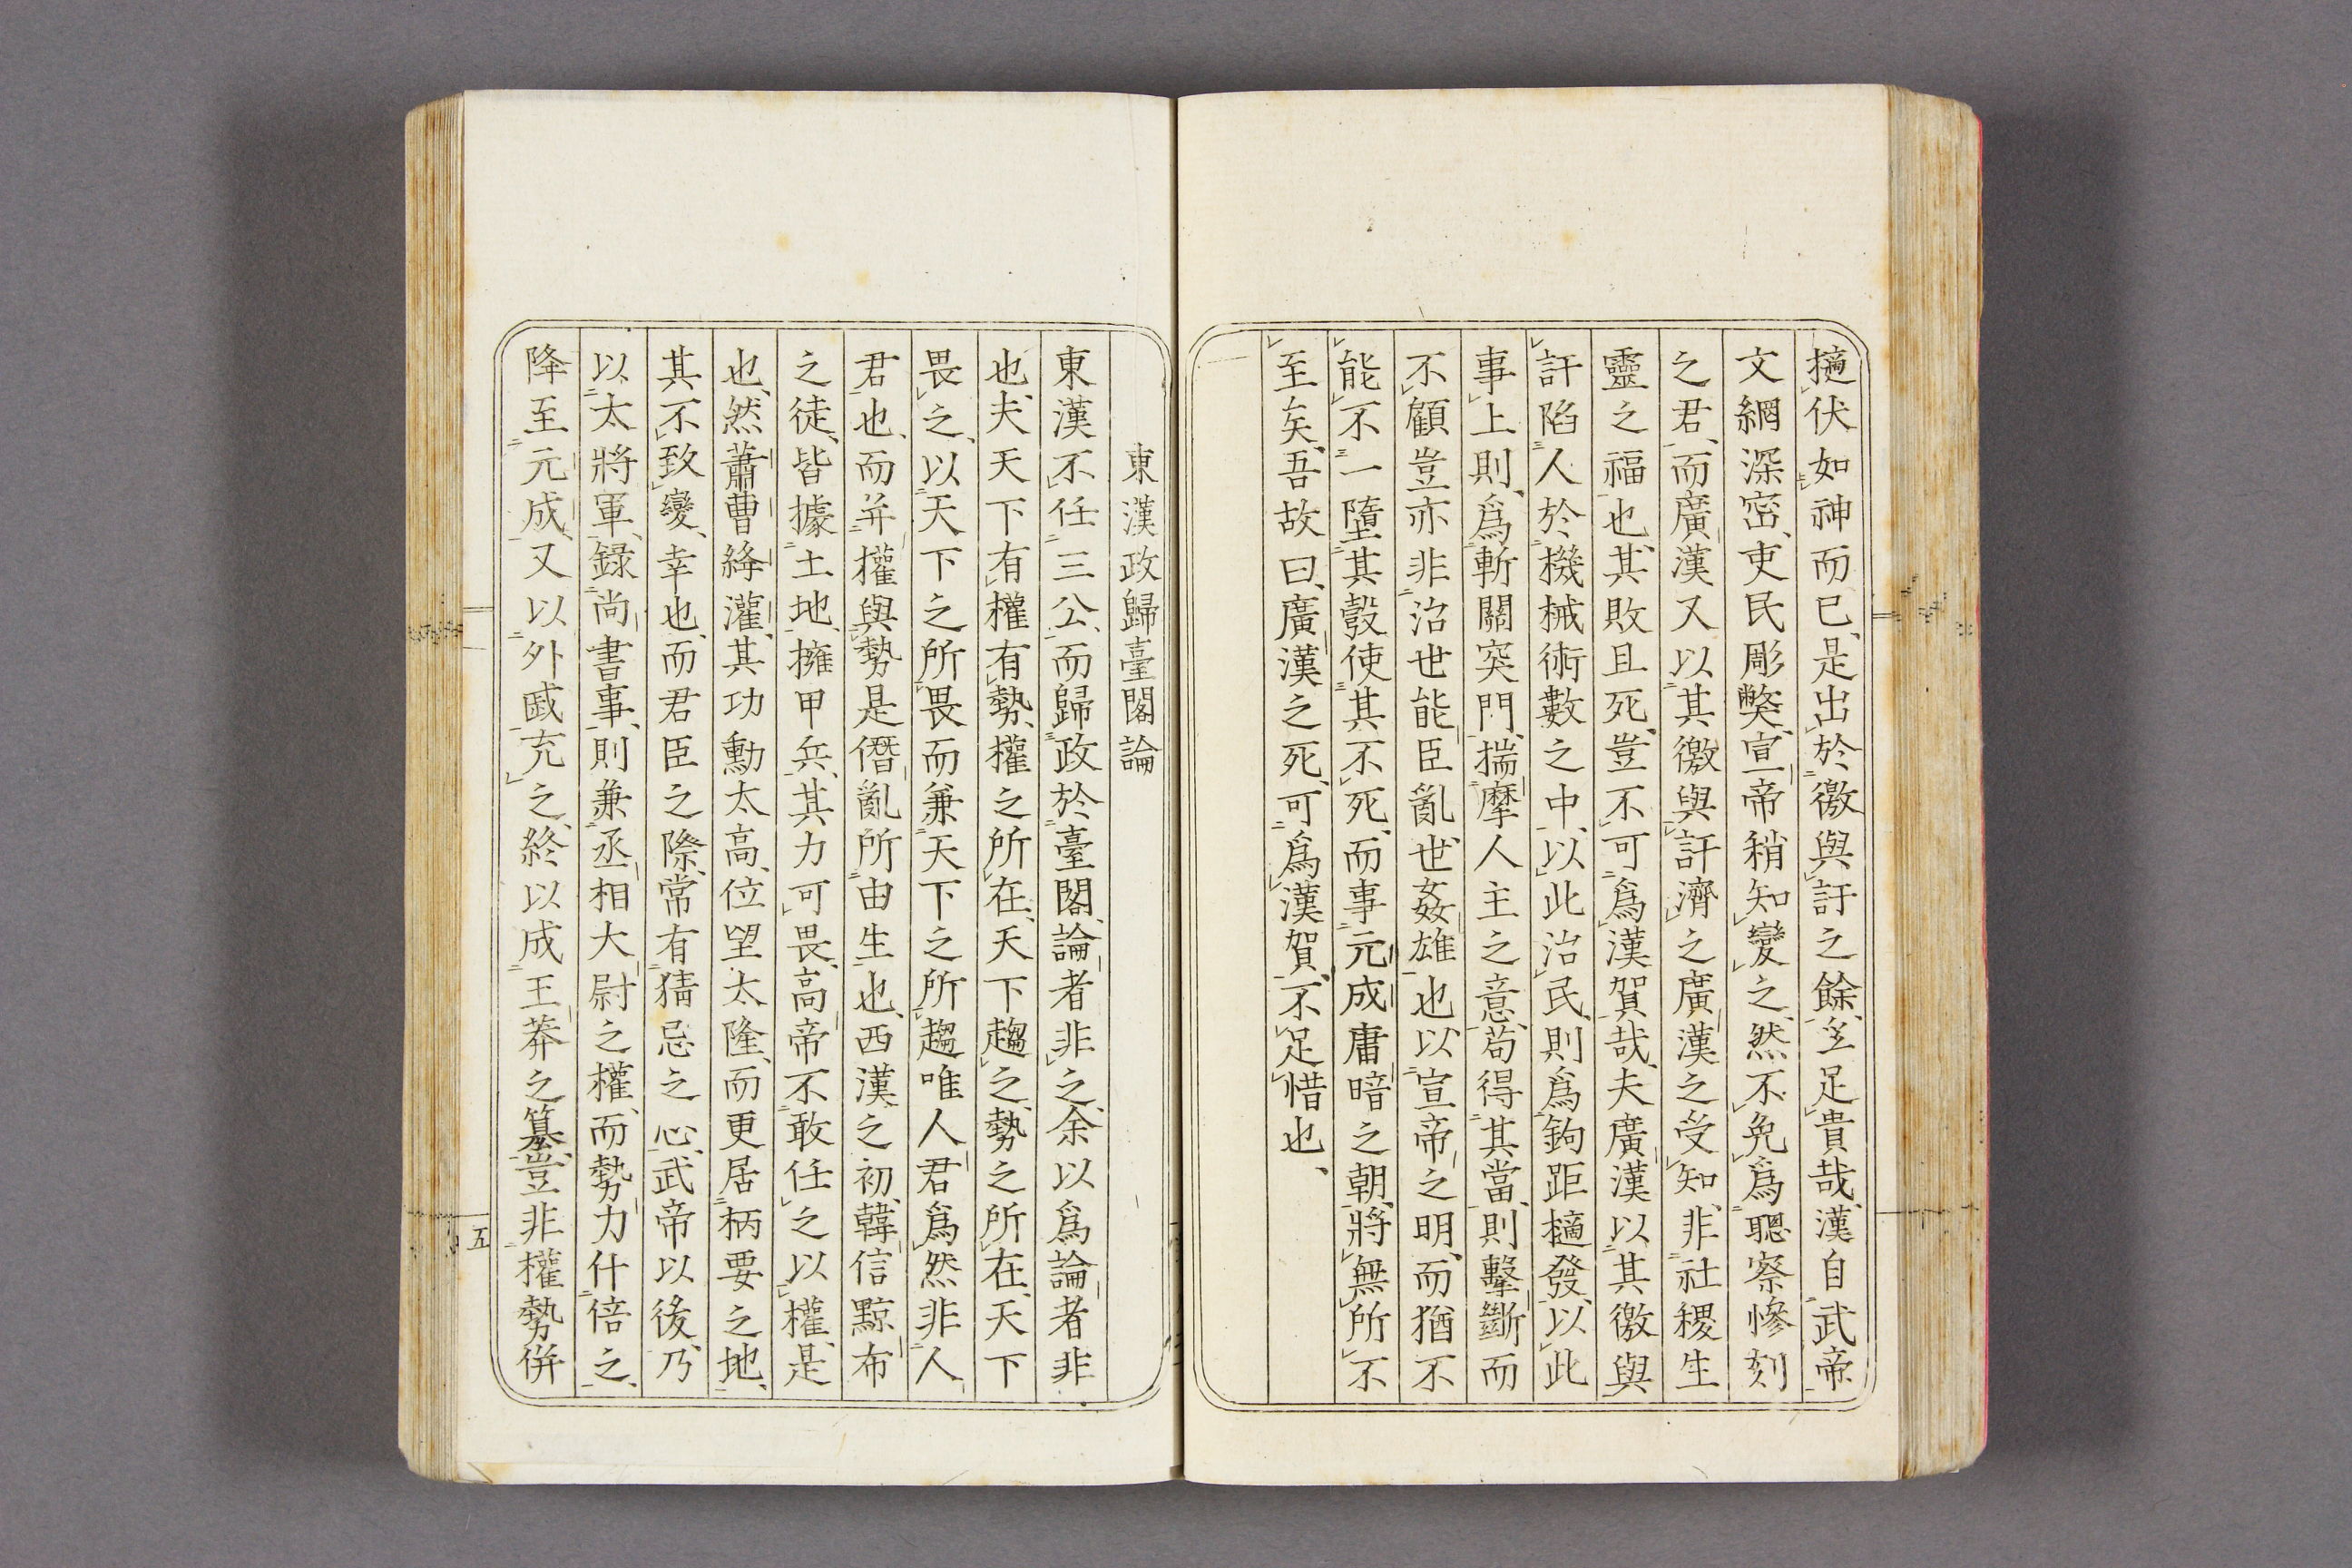 擿伏如神而已、是出於徼與訐之餘、㐧足貴哉、漢自武帝
文網深密、吏民彫弊、宣帝稍知變之、然不免爲聰察慘刻
之君、而廣漢又以其徼與訐濟之、廣漢之受知、非社稷生
靈之福也、其敗且死、豈不可爲漢賀哉、夫廣漢以其徼與
訐陷人於機械術數之中、以此治民、則爲鉤距擿發、以此
事上、則爲斬關突門、揣摩人主之意、苟得其當、則擊斷而
不顧、豈亦非治世能臣亂世姦雄也、以宣帝之明、而猶不
能不一墮其彀、使其不死、而事元成庸暗之朝、將無所不
至矣、吾故曰、廣漢之死、可爲漢賀、不足惜也、
東漢政歸臺閣論
東漢不任三公、而歸政於臺閣、論者非之、余以爲論者非
也、夫天下有權有勢、權之所在、天下趨之、勢之所在、天下
畏之、以天下之所畏、而兼天下之所趨、唯人君爲然、非人
君也、而并權與勢、是僭亂所由生也、西漢之初、韓信黥布
之徒、皆據土地、擁甲兵、其力可畏、高帝不敢任之以權、是
也、然蕭曹絳灌、其功勳太高、位望太隆、而更居柄要之地、
其不致變、幸也、而君臣之際、常有猜忌之心、武帝以後、乃
以太將軍、錄尚書事、則兼丞相大尉之權、而勢力什倍之、
降至元成、又以外戚充之、終以成王莽之簒、豈非權勢併
五